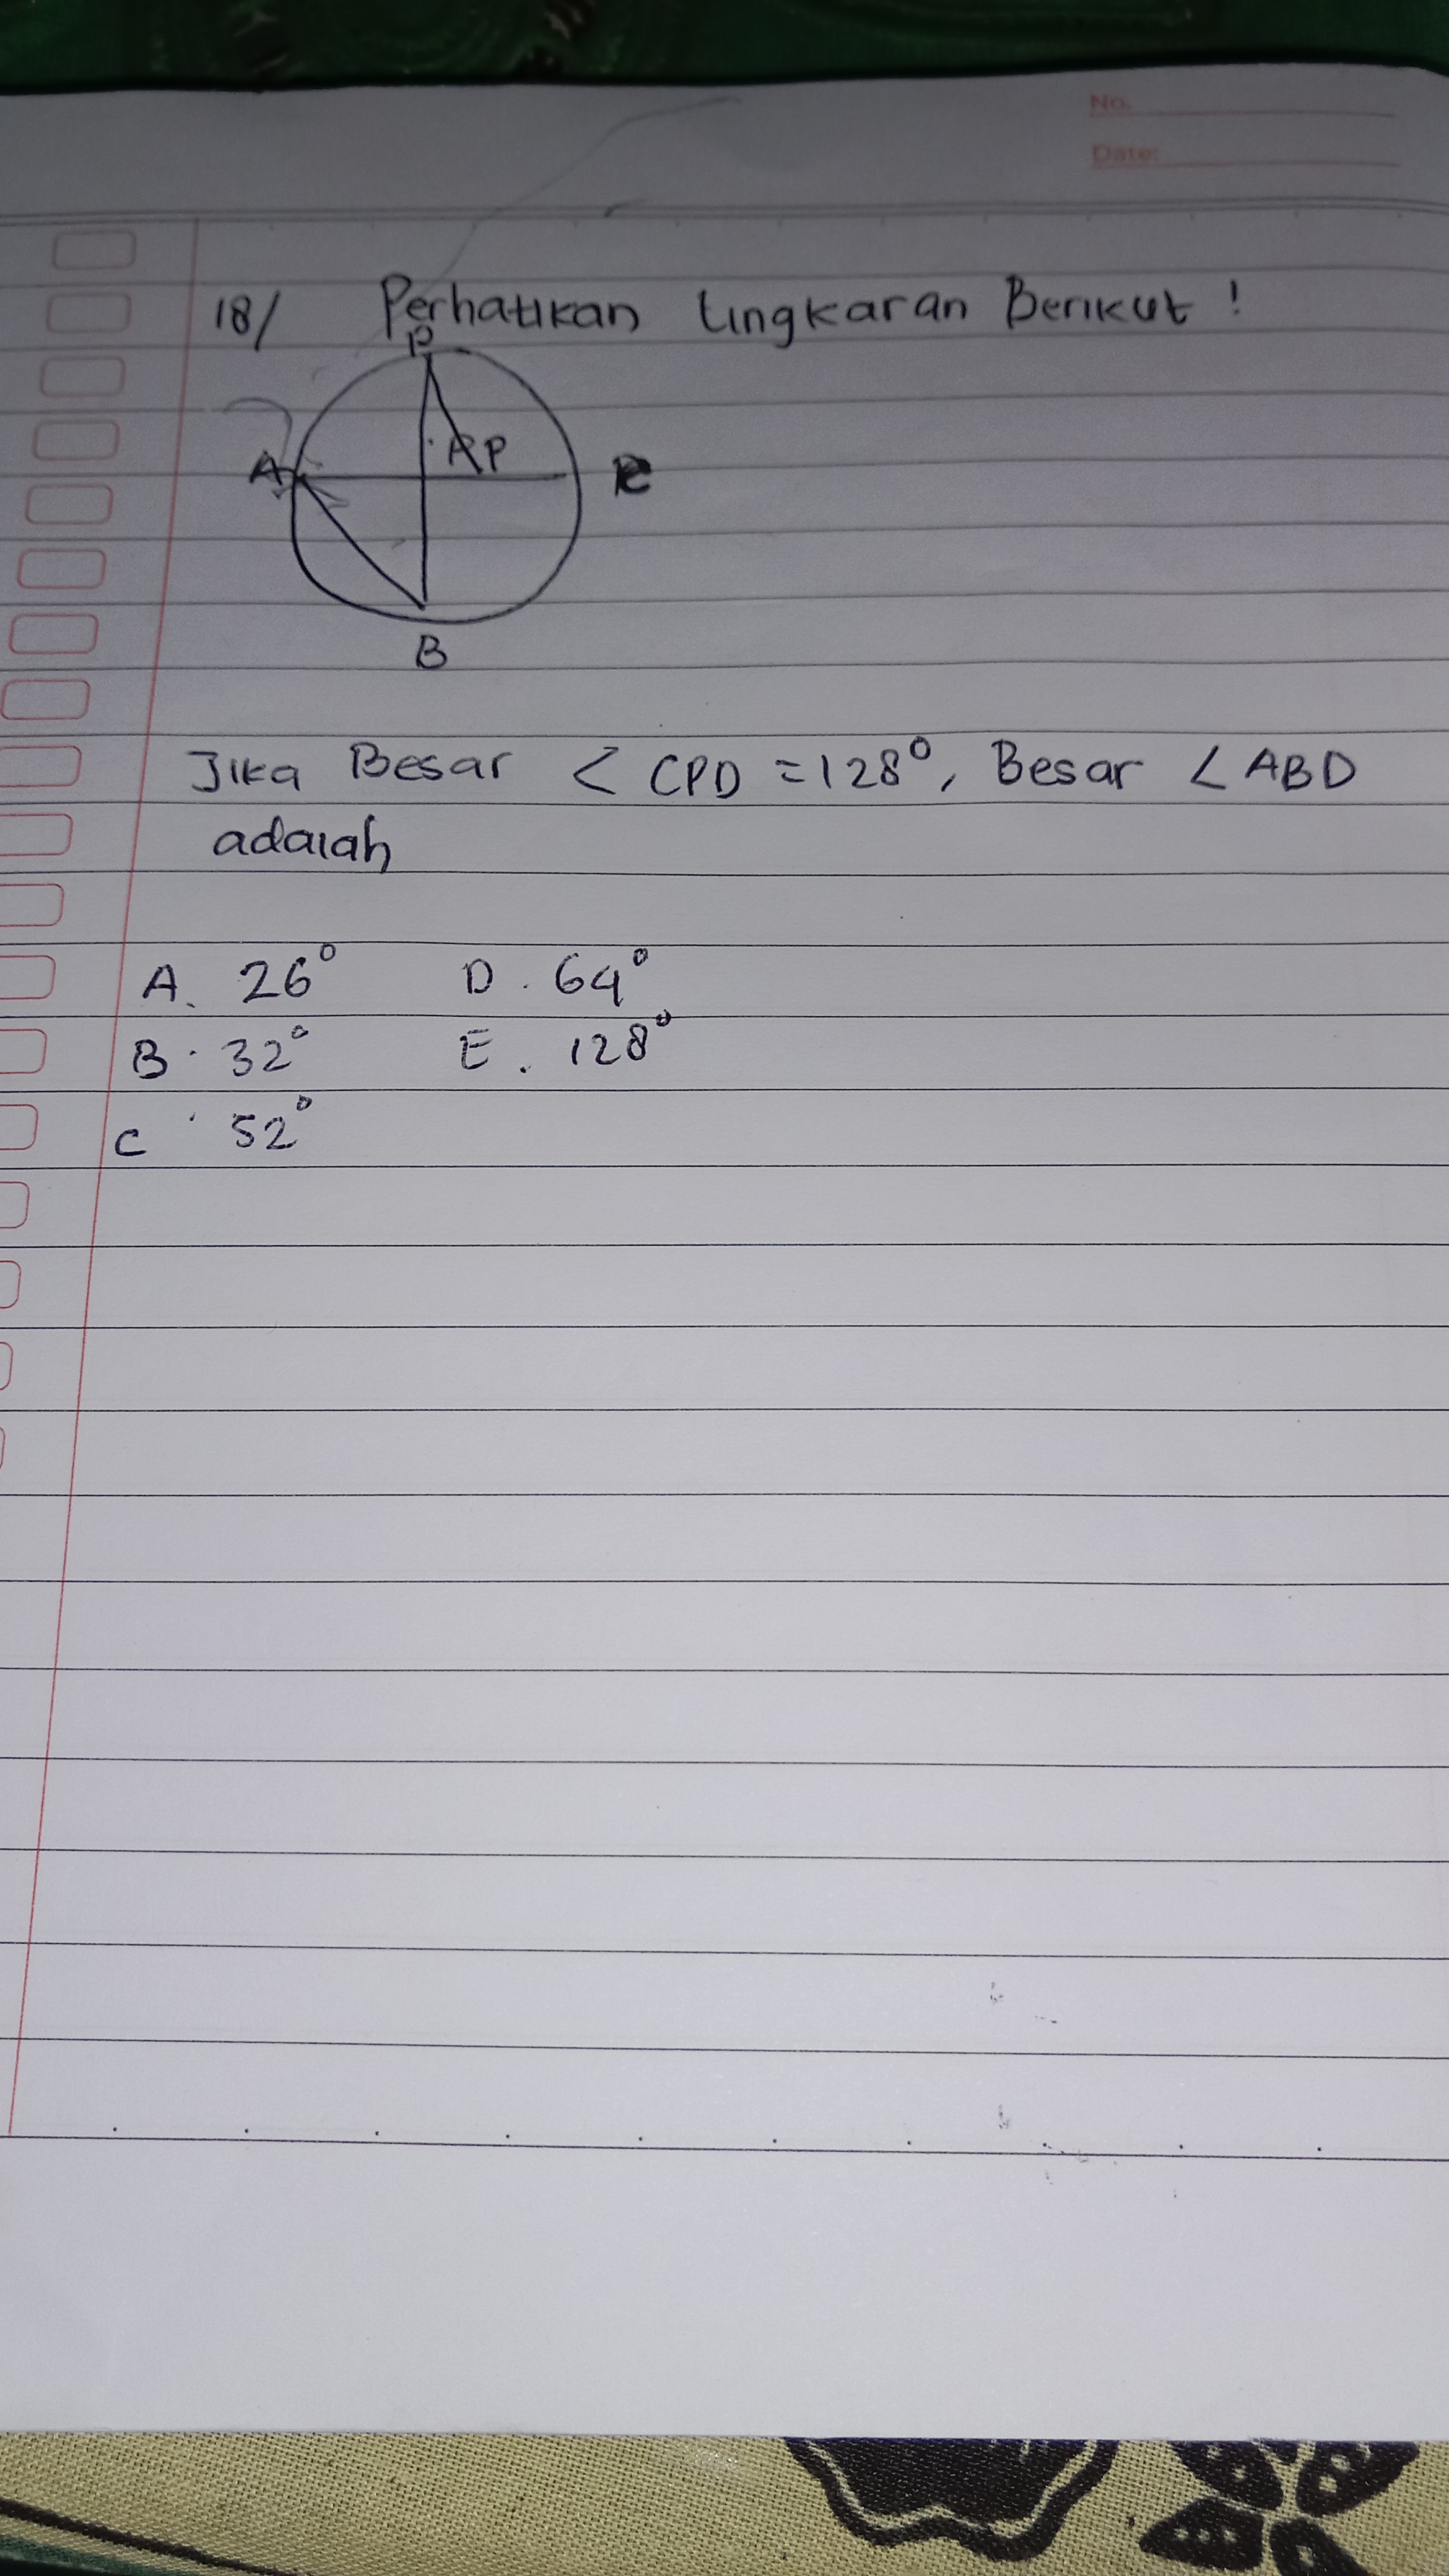 No.
Date:
18/ Perhatikan lingkaran Berikut !
A
P
B
Jika Besar < CPD = 128°, Besar ∠ ABD
adalah
A. 26° D. 64°
B. 32° E. 128°
C. 52°